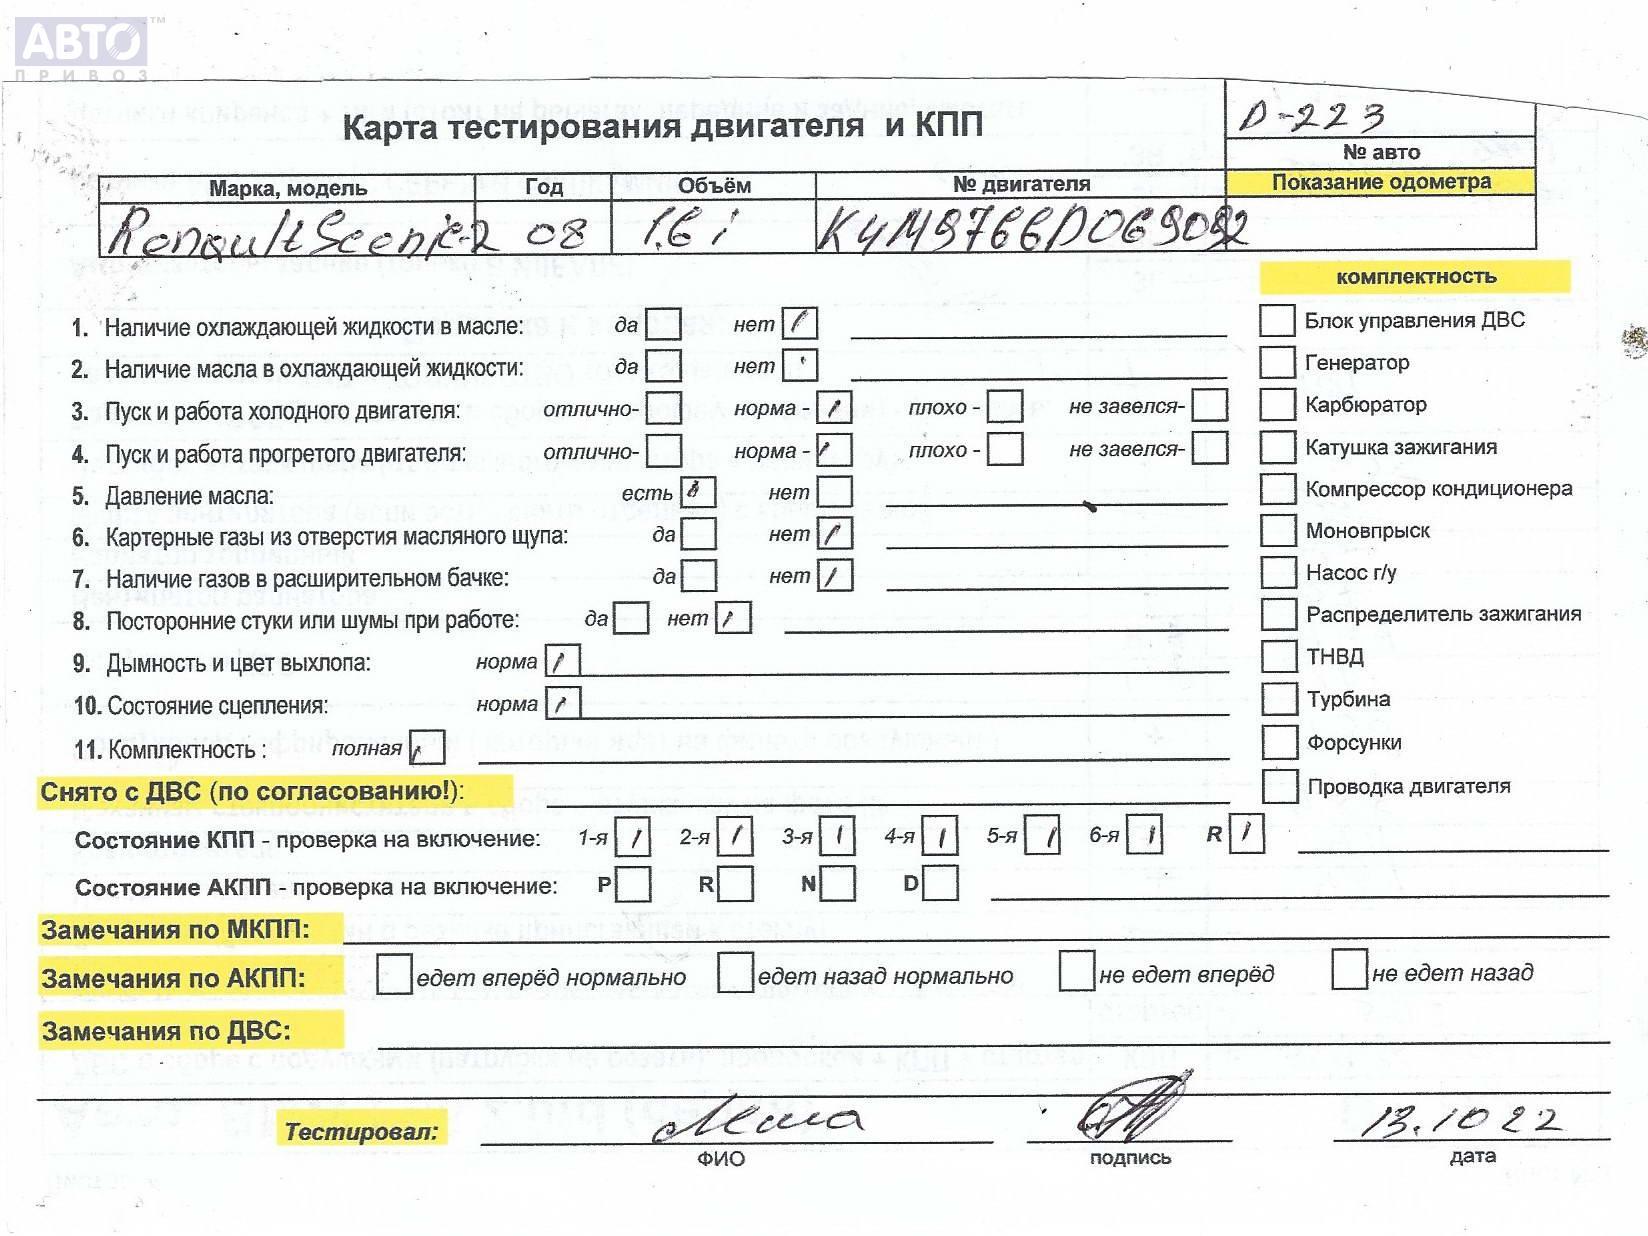 АВТО™
ПРИВОЗ
Карта тестирования двигателя и КПП
D-223
№ авто
Марка, модель Год Объём № двигателя Показание одометра
Renault Scenic-2 08 1.6 i K4M9766D069092
комплектность
1. Наличие охлаждающей жидкости в масле: да нет / Блок управления ДВС
2. Наличие масла в охлаждающей жидкости: да нет / Генератор
3. Пуск и работа холодного двигателя: отлично- норма - / плохо - не завелся- Карбюратор
4. Пуск и работа прогретого двигателя: отлично- норма - / плохо - не завелся- Катушка зажигания
5. Давление масла: есть / нет Компрессор кондиционера
6. Картерные газы из отверстия масляного щупа: да нет / Моновпрыск
7. Наличие газов в расширительном бачке: да нет / Насос г/у
8. Посторонние стуки или шумы при работе: да нет / Распределитель зажигания
9. Дымность и цвет выхлопа: норма / ТНВД
10. Состояние сцепления: норма / Турбина
11. Комплектность : полная / Форсунки
Снято с ДВС (по согласованию!): Проводка двигателя
Состояние КПП - проверка на включение: 1-я / 2-я / 3-я / 4-я / 5-я / 6-я / R /
Состояние АКПП - проверка на включение: P R N D
Замечания по МКПП:
Замечания по АКПП: едет вперёд нормально едет назад нормально не едет вперёд не едет назад
Замечания по ДВС:
Тестировал: Леша 13.10 22
ФИО подпись дата